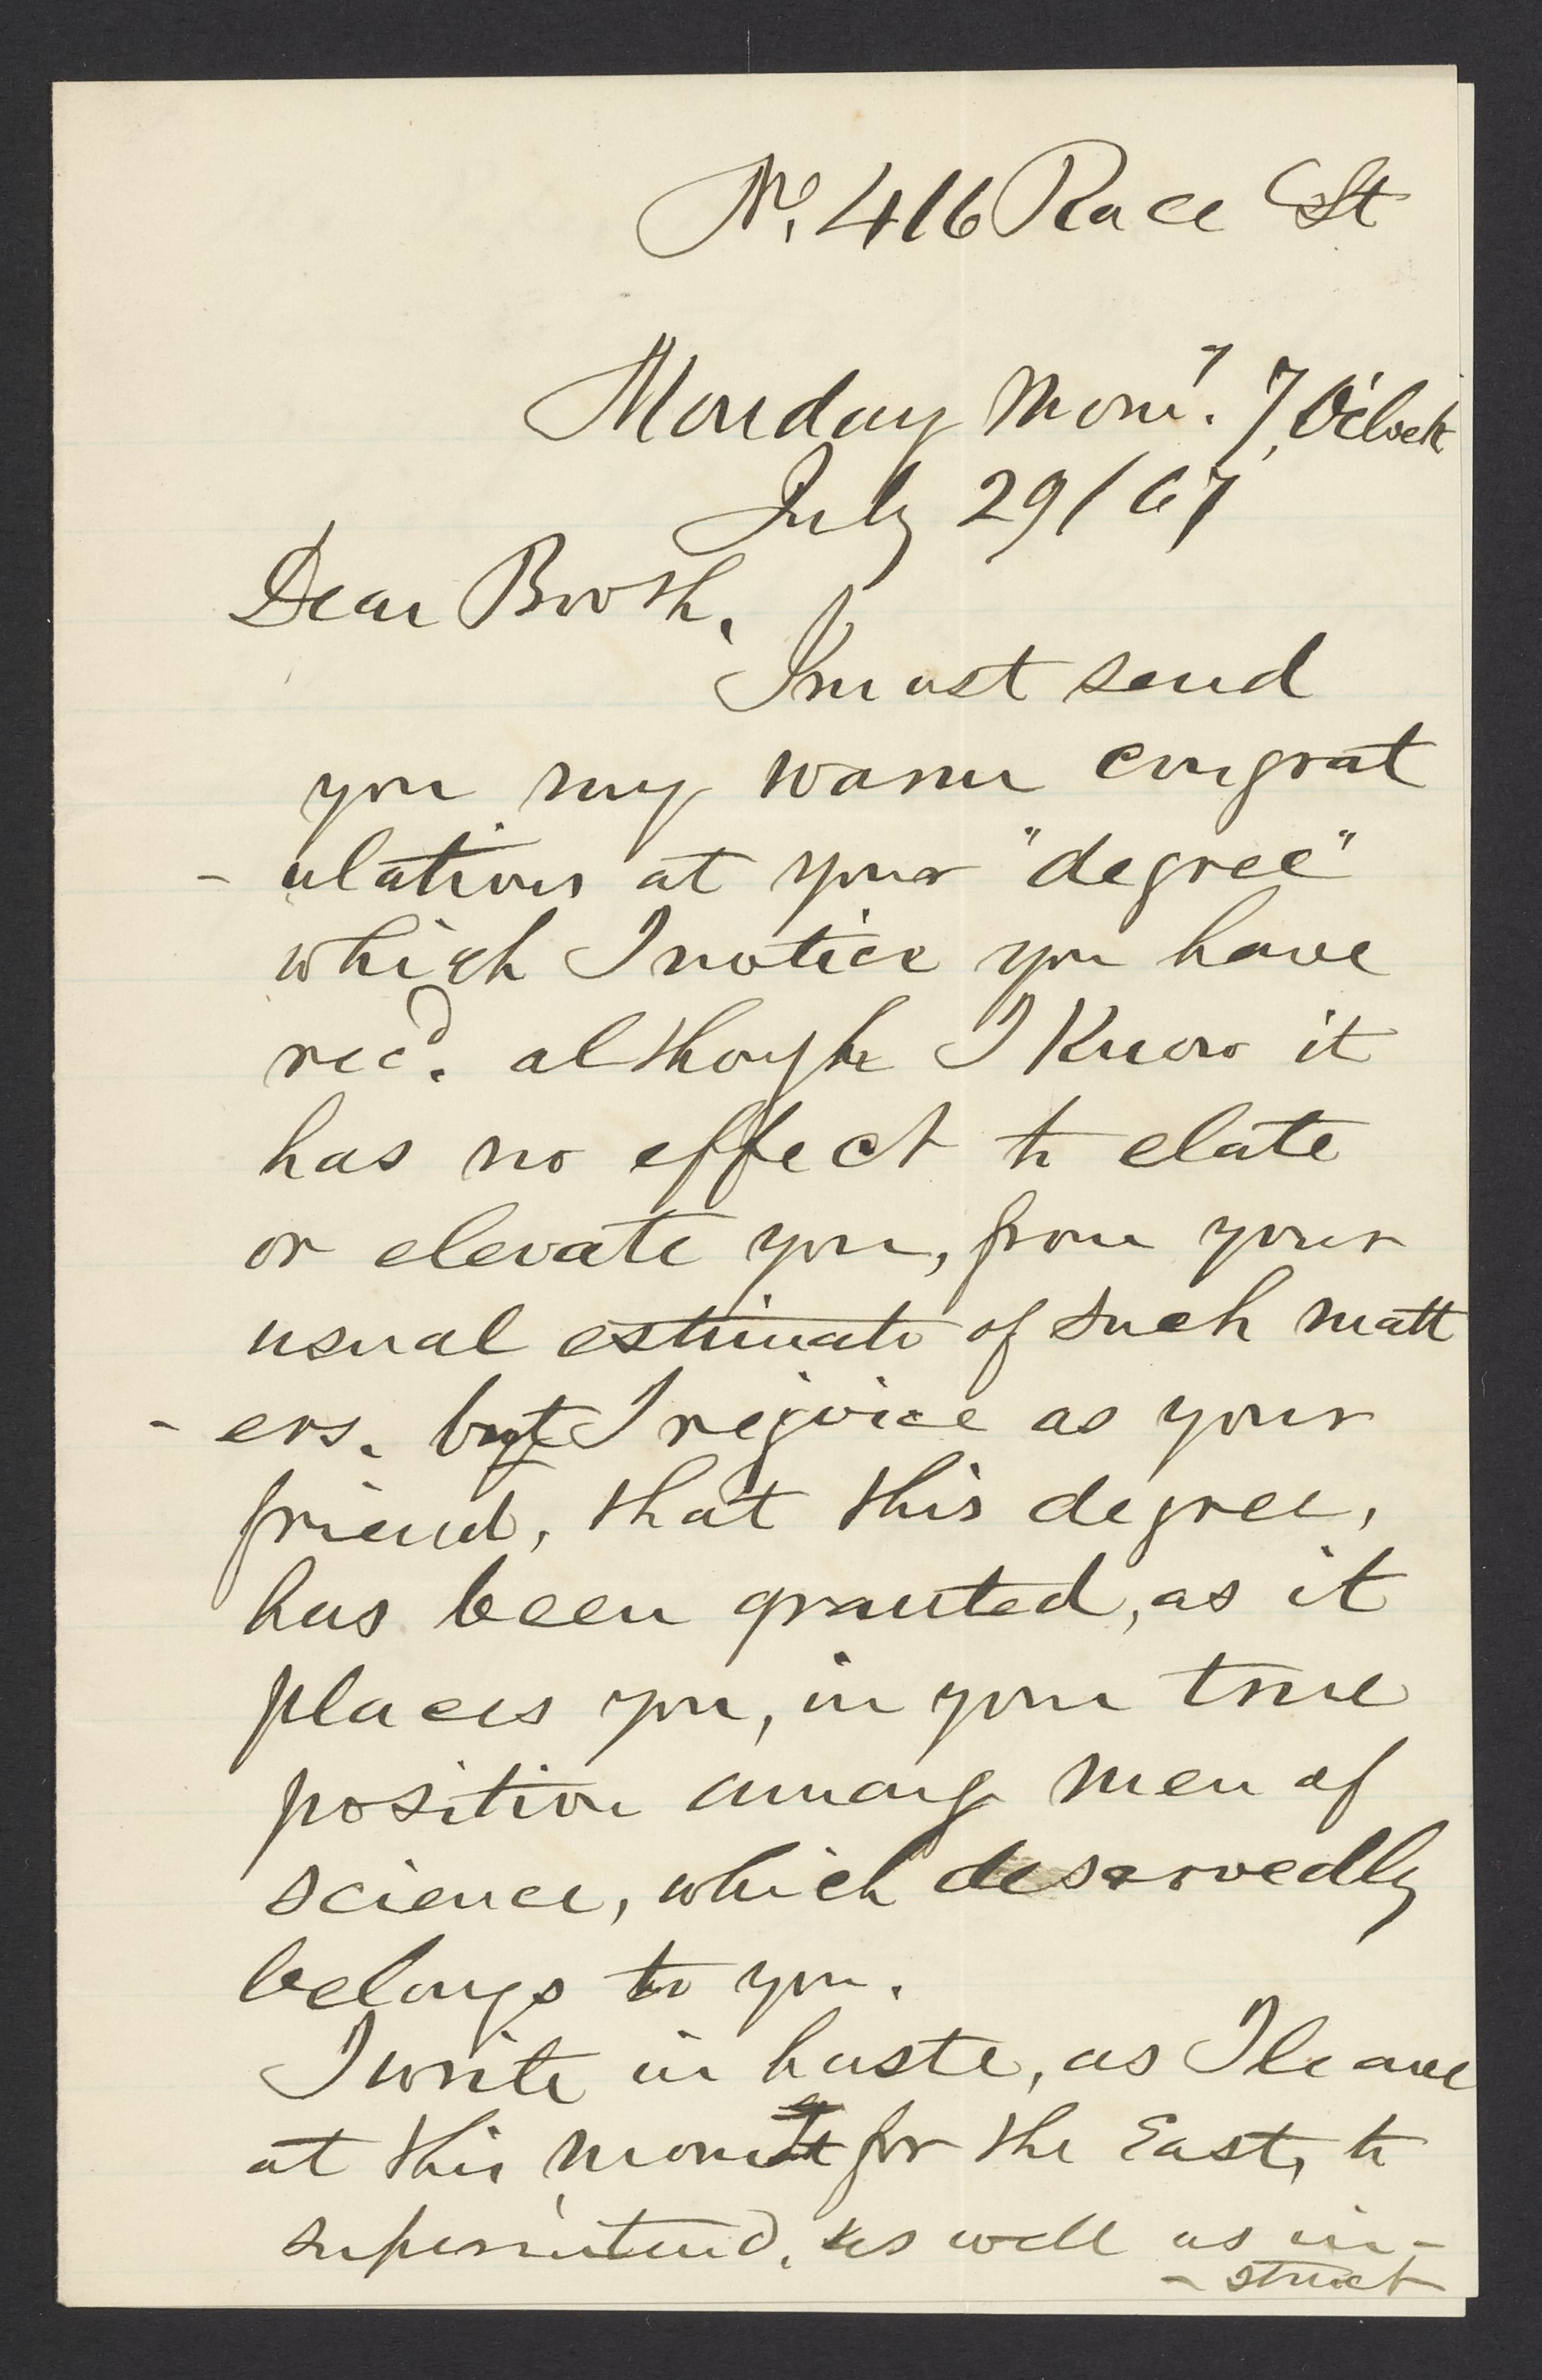 No. 416 Race St
Monday Morng. 7 O'clock
July 29/67
Dear Booth,
I must send
you my warm congrat
- ulations at your "degree"
which I notice you have
recd. although I Know it
has no effect to elate
or elevate you, from your
usual estimate of such matt
- ers. but I rejoice as your
friend, that this degree,
has been granted, as it
places you, in your true
position among men of
science, which deservedly
belongs to you.
I write in haste, as I leave
at this moment for the East, to
superintend, as well as in-
- struct